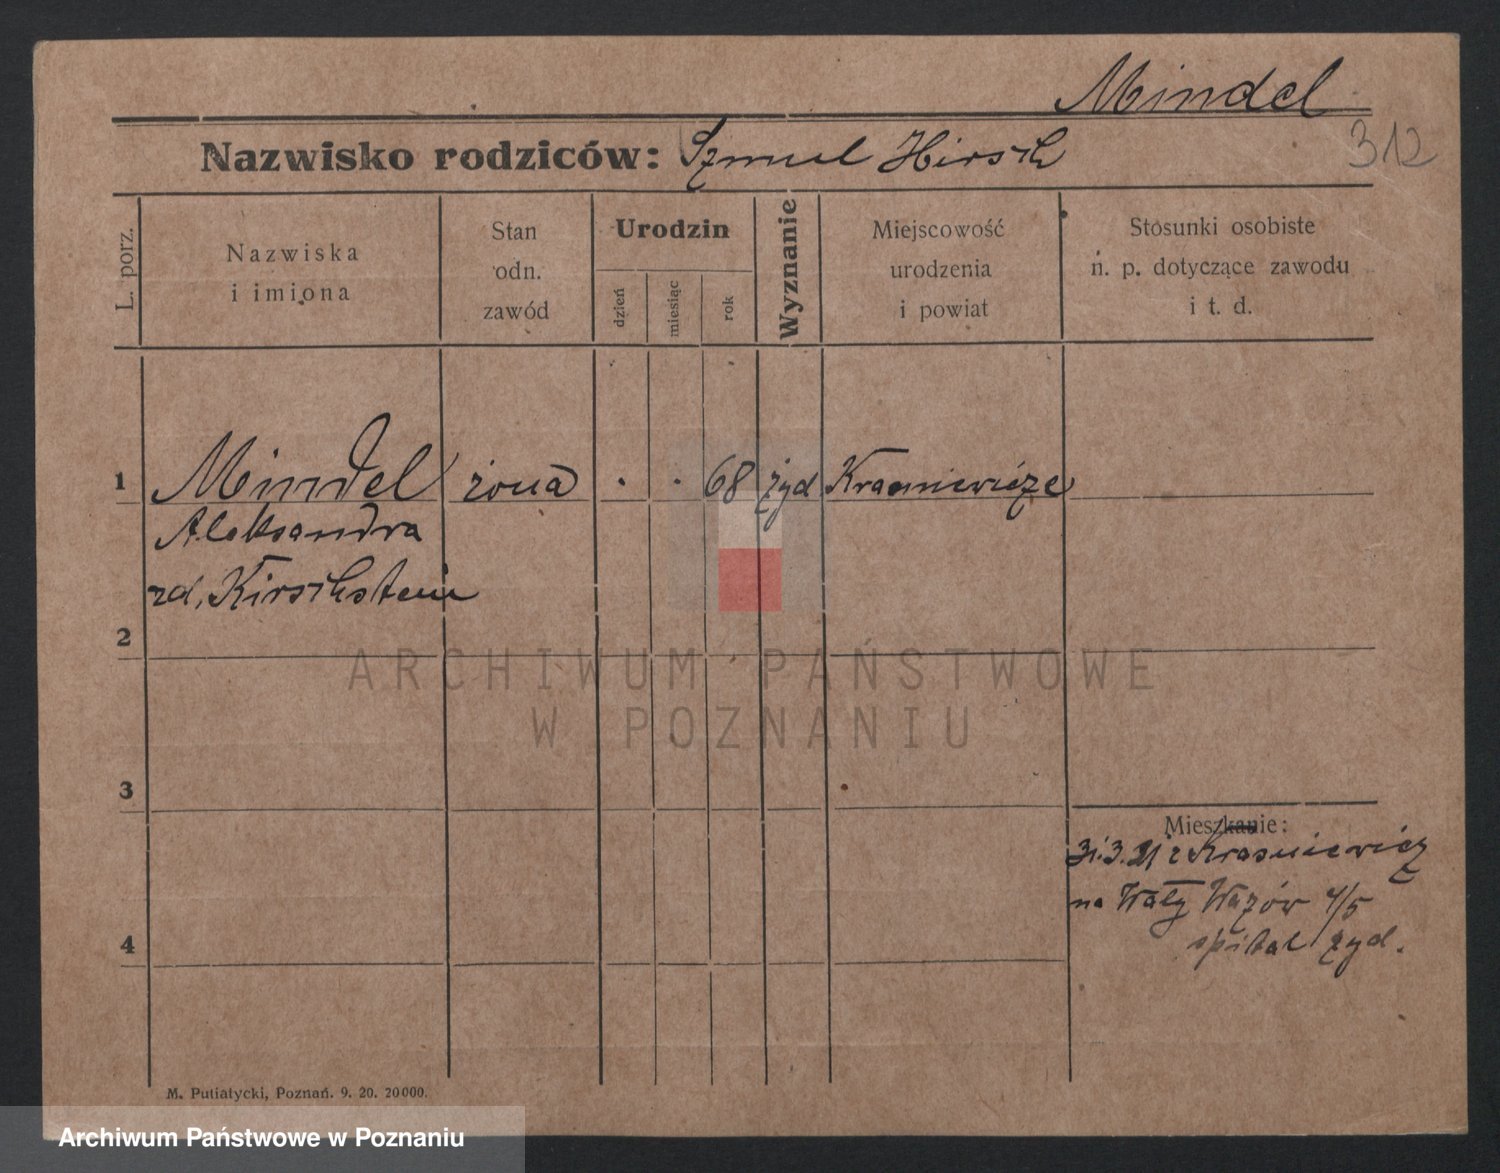 Mindel
Nazwisko rodziców: Szmul Hirsch
312
L. porz.
Nazwiska
i imiona
Stan
odn.
zawód
Urodzin
dzień
miesiąc
rok
Wyznanie
Miejscowość
urodzenia
i powiat
Stosunki osobiste
n. p. dotyczące zawodu
i t. d.
1 Mindel żona . . 68 żyd Krasniewicze
Aleksandra
zd. Kirschstein
2
ARCHIWUM PAŃSTWOWE
W POZNANIU
3
Mieszkanie:
31.3.21 z Krosniewicz
na Wały Wazów 4/5
spital żyd.
4
M. Putiatycki, Poznań. 9. 20. 20000.
Archiwum Państwowe w Poznaniu